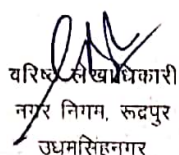 वरिष्ठ लेखाधिकारी
नगर निगम, रूद्रपुर
उधमसिंहनगर